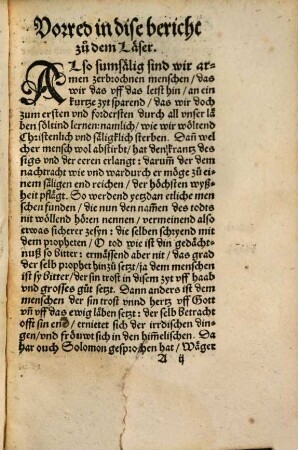 Vorred in dise bericht
zů dem Läser.
ALso sumsälig sind wir ar-
men zerbrochnen menschen / das
wir das vff das letst hin / an ein
kurtze zyt sparend / das wir doch
zum ersten vnd fordersten durch all vnser lä
ben söltind lernen: namlich / wie wir wöltend
Christenlich vnd säligklich sterben. Dañ wel
cher mensch wol abstirbt / hat den krantz des
sigs vnd der eeren erlangt: darumm̃ der dem
nachtracht wie vnd wardurch er möge zů ei-
nem säligen end reichen / der höchsten wyß-
heit pflägt. So werdend yetzdan etliche men
schen funden / die nun den nam̃en des todts
nit wöllend hören nennen / vermeinend also
etwas sicherer zesyn: die selben schryend mit
dem propheten / O tod wie ist din gedächt-
nuß so bitter: ermässend aber nit / das grad
der selb prophet hinzů setzt / ja dem menschen
ist sy bitter / der sin trost in disem zyt vff haab
vnd grosses gůt setzt. Dann anders ist dem
menschen der sin trost vnnd hertz vff Gott
vñ vff das ewig läben setzt: der selb betracht
offt sin end / ernietet sich der irdischen din-
gen / vnd fröuwt sich in den him̃elischen. Da
har ouch Solomon gesprochen hat / Wäger
A ij